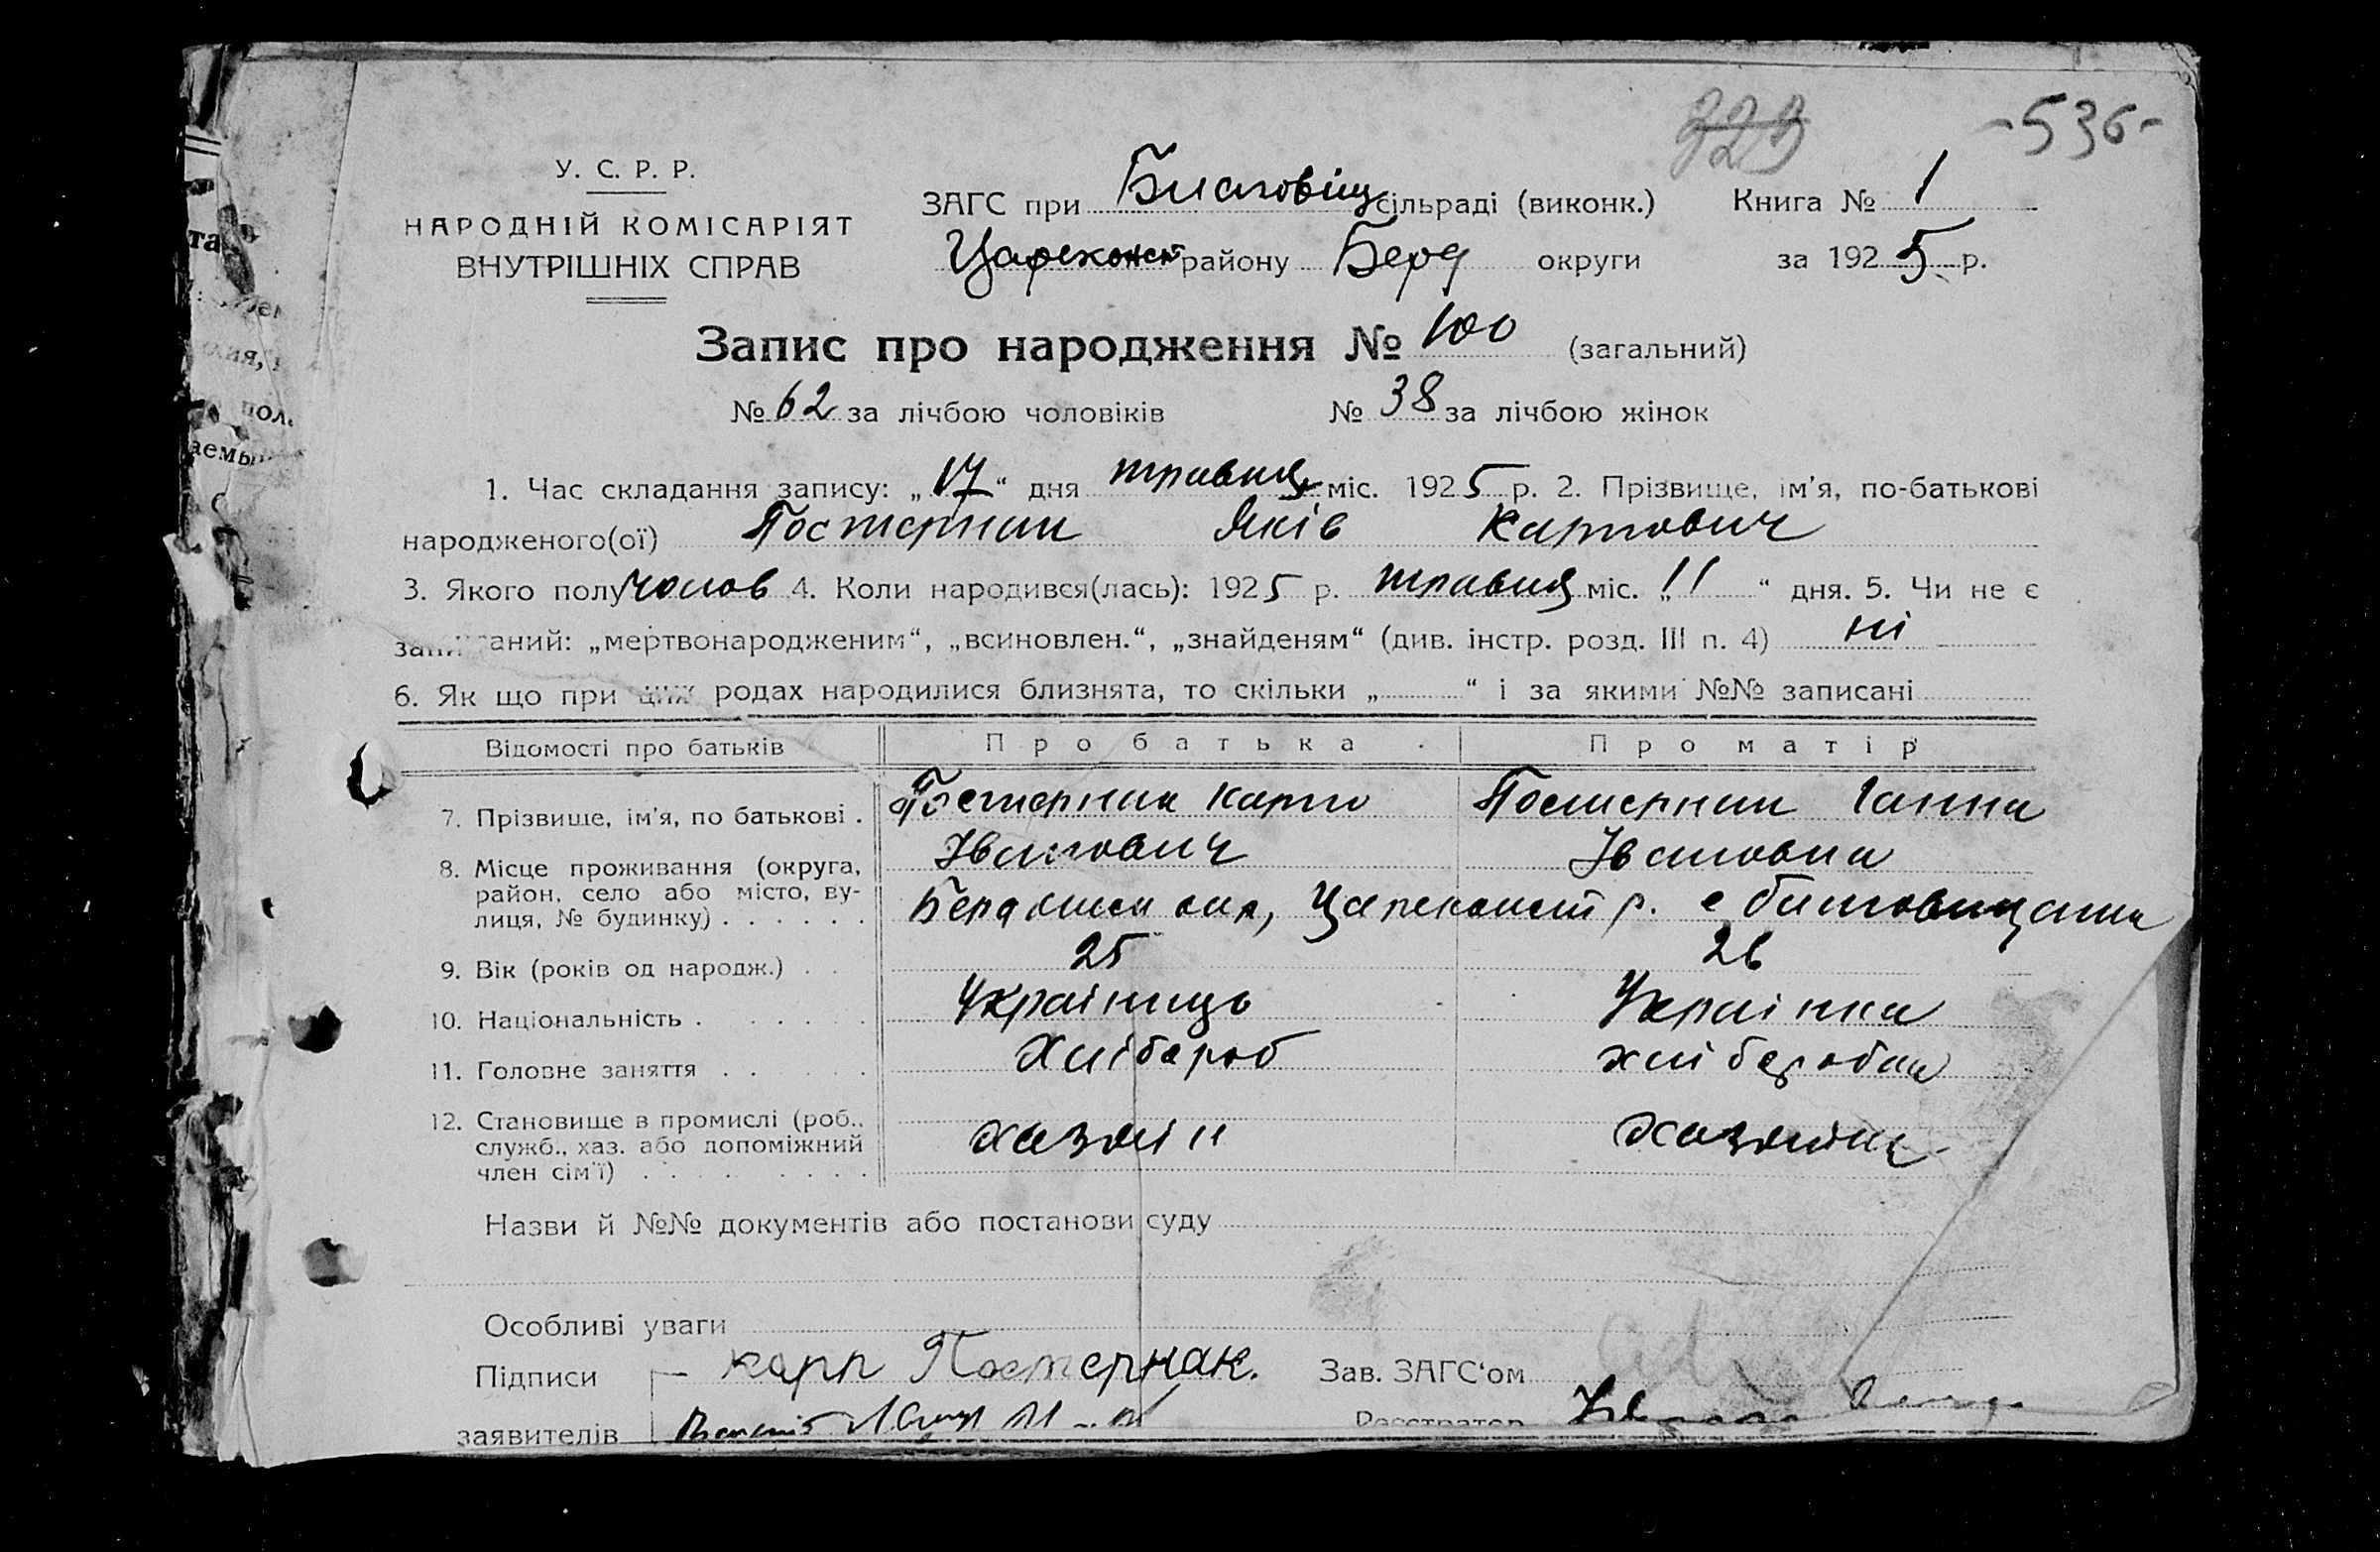 323 -536-
У. С. Р. Р.
НАРОДНІЙ КОМІСАРІЯТ
ВНУТРІШНІХ СПРАВ
ЗАГС при Благовіщ сільраді (виконк.) Книга № 1
Царекконст району Берд округи за 1925 р.
Запис про народження № 100 (загальний)
№ 62 за лічбою чоловіків № 38 за лічбою жінок
1. Час складання запису: „17“ дня травня міс. 1925 р. 2. Прізвище, ім’я, по-батькові
народженого(ої) Постернак Яків Карпович
3. Якого полу чолов 4. Коли народився(лась): 1925 р. травня міс. „11“ дня. 5. Чи не є
аний: „мертвонародженим“, „всиновлен.“, „знайденям“ (див. інстр. розд. III п. 4) ні
6. Як що при цих родах народилися близнята, то скільки „ “ і за якими №№ записані
Відомості про батьків Про батька Про матір
7. Прізвище, ім’я, по батькові . Постернак Карпо Постернак Ганна
Іванович Івановна
8. Місце проживання (округа,
район, село або місто, ву-
лиця, № будинку) . . . . . . Бердянськ окр, Цареконст р. с Благовищання
9. Вік (років од народж.) . . 25 26
10. Національність . . . . . . Украінець Украінка
11. Головне заняття . . . . . Хлібороб хлібообка
12. Становище в промислі (роб.,
служб., хаз. або допоміжний
член сім’ї) . . . . . . . . хазяїн хазяйка
Назви й №№ документів або постанови суду
Особливі уваги
Підписи карп Постернак. Зав. ЗАГС‘ом
заявителів Реєстратор
та
пол.
аемы